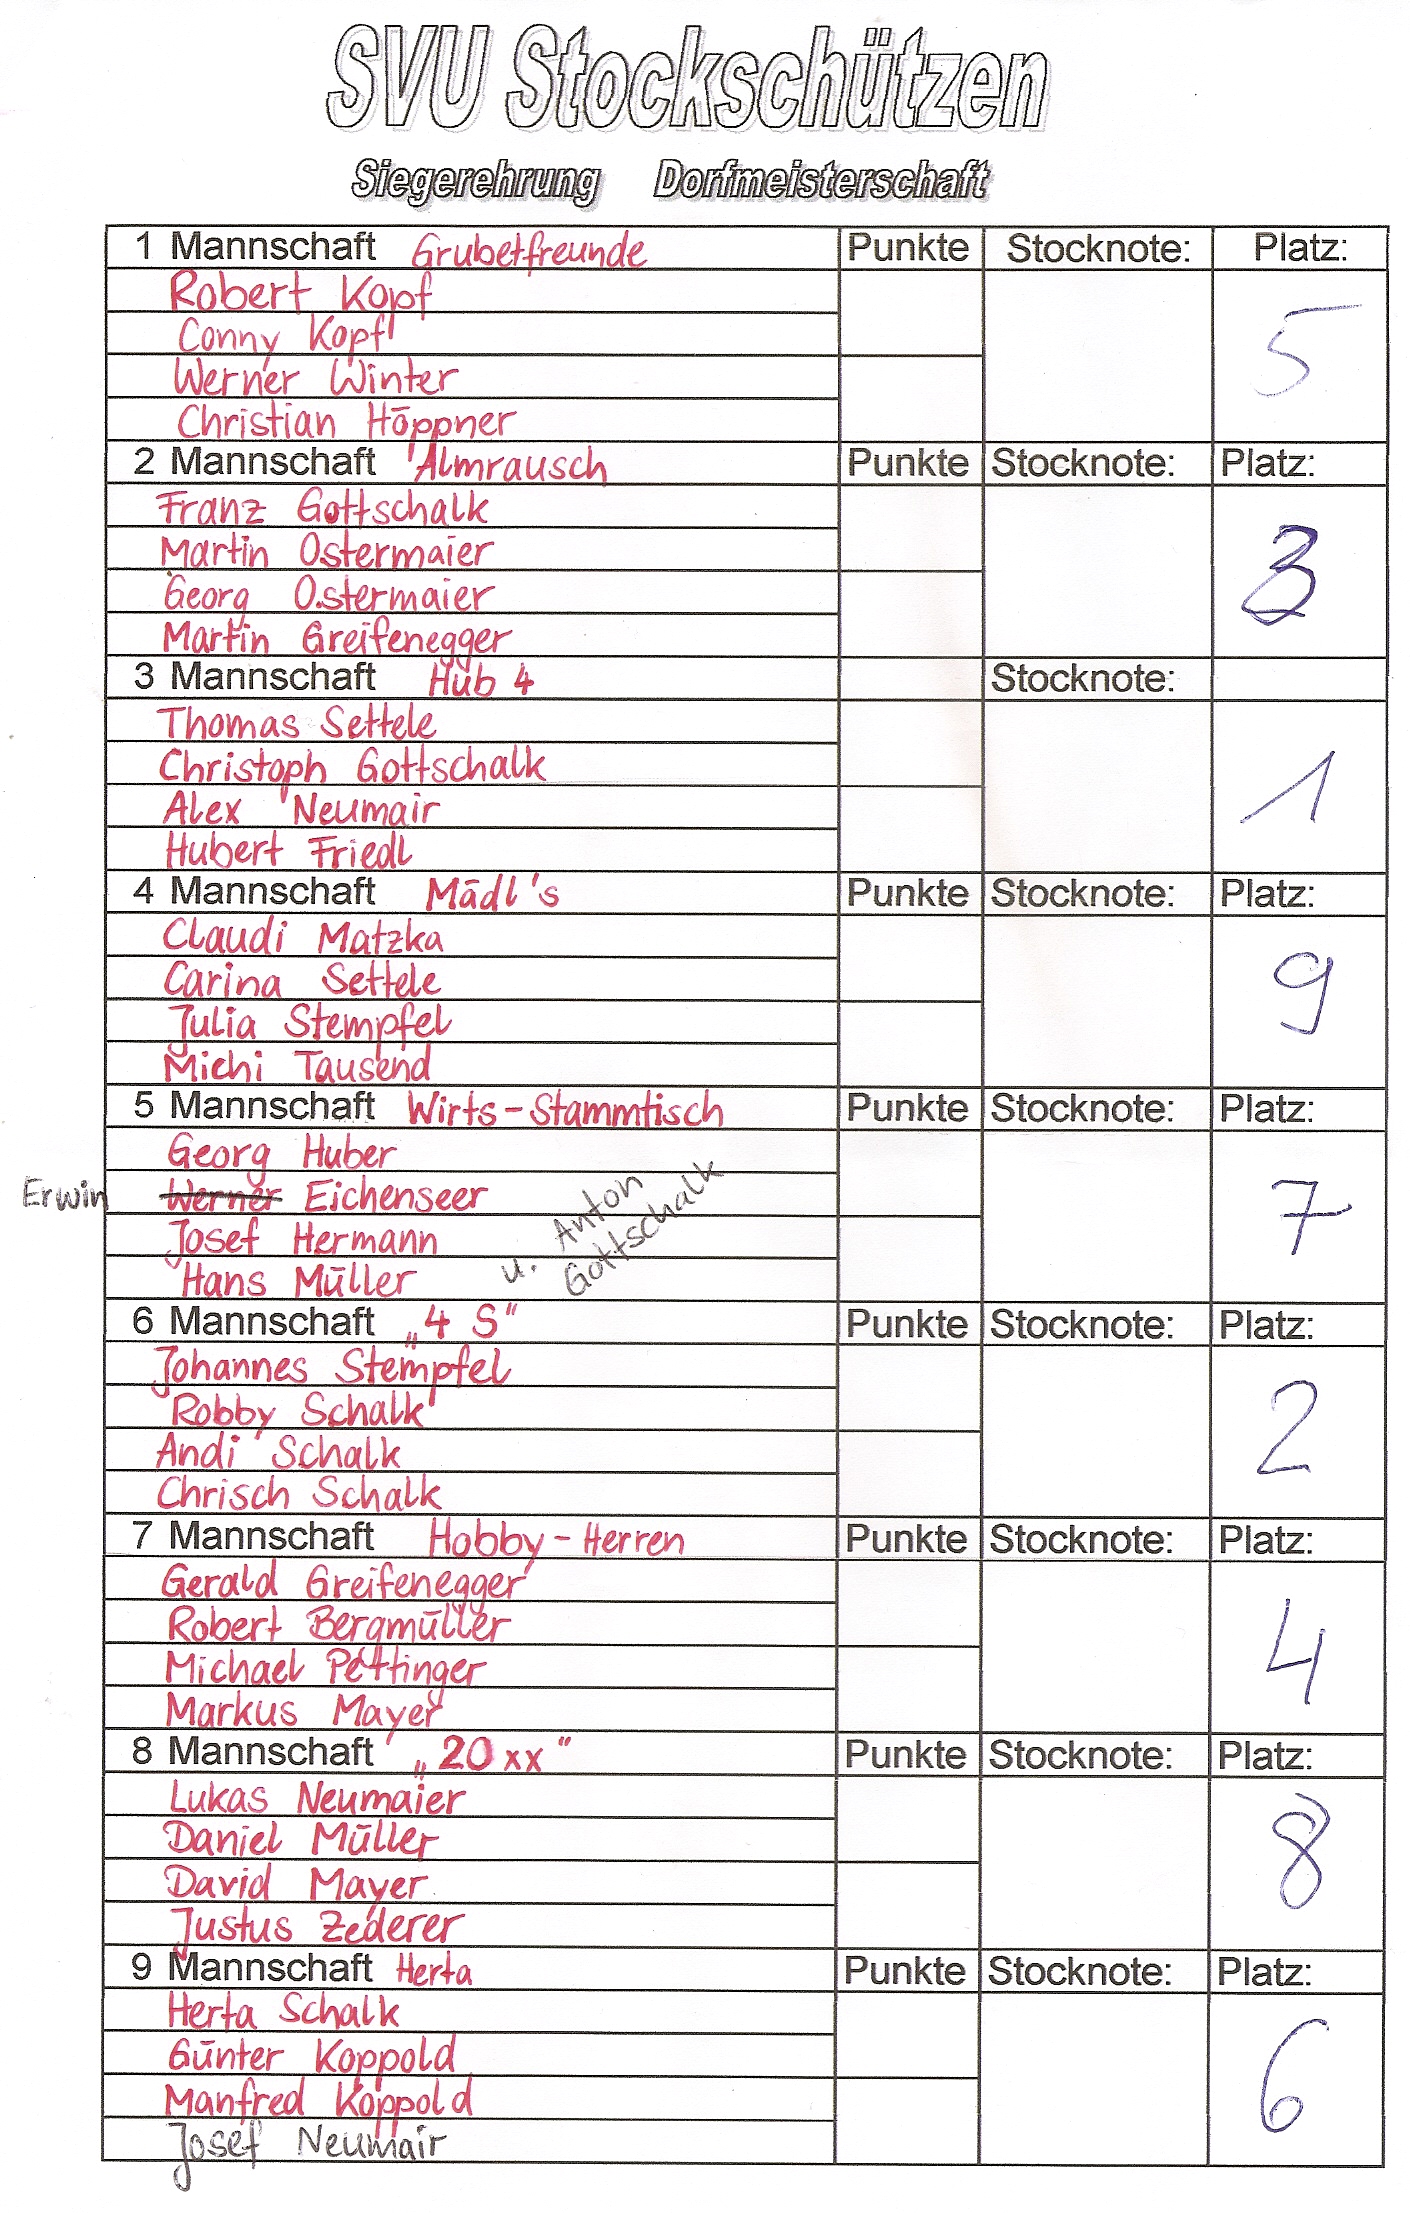 SVU Stockschützen
Siegerehrung Dorfmeisterschaft
1 Mannschaft Grubetfreunde Punkte Stocknote: Platz:
Robert Kopf
Conny Kopf
Werner Winter
Christian Höppner
5
2 Mannschaft Almrausch Punkte Stocknote: Platz:
Franz Gottschalk
Martin Ostermaier
Georg Ostermaier
Martin Greifenegger
3
3 Mannschaft Hub 4 Stocknote:
Thomas Settele
Christoph Gottschalk
Alex Neumair
Hubert Friedl
1
4 Mannschaft Mädl's Punkte Stocknote: Platz:
Claudi Matzka
Carina Settele
Julia Stempfel
Michi Tausend
9
5 Mannschaft Wirts-Stammtisch Punkte Stocknote: Platz:
Georg Huber
Erwin Werner Eichenseer
Josef Hermann
Hans Müller
u. Anton
Gottschalk
7
6 Mannschaft „4 S" Punkte Stocknote: Platz:
Johannes Stempfel
Robby Schalk
Andi Schalk
Chrisch Schalk
2
7 Mannschaft Hobby-Herren Punkte Stocknote: Platz:
Gerald Greifenegger
Robert Bergmüller
Michael Pettinger
Markus Mayer
4
8 Mannschaft „20xx" Punkte Stocknote: Platz:
Lukas Neumaier
Daniel Müller
David Mayer
Justus Zederer
8
9 Mannschaft Herta Punkte Stocknote: Platz:
Herta Schalk
Günter Koppold
Manfred Koppold
Josef Neumair
6